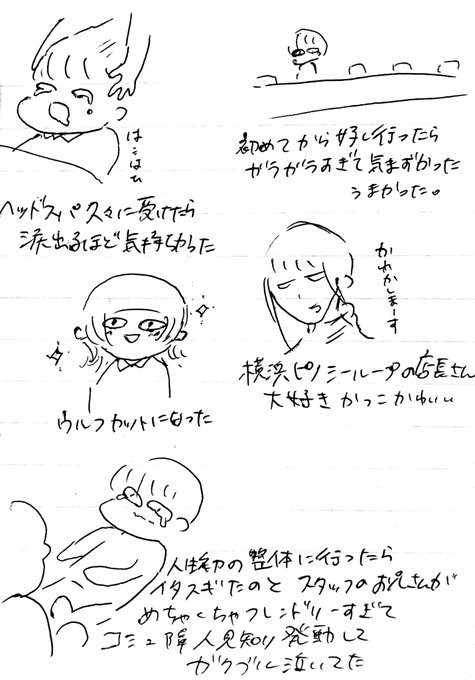 はニはひ
ヘッドスパ久々に受けたら
涙出るほど気持ちよかった
初めてから好し行ったら
ガラガラすぎて気まずかった
うまかった。
ウルフカットになった
かわかしまーす
横浜ピノシーループの店長さん
大好き かっこかわいい
人生初の整体に行ったら
イタスギたのと スタッフのお兄さんが
めちゃくちゃフレンドリーすぎて
コミュ障人見知り発動して
ガクブル泣いてた